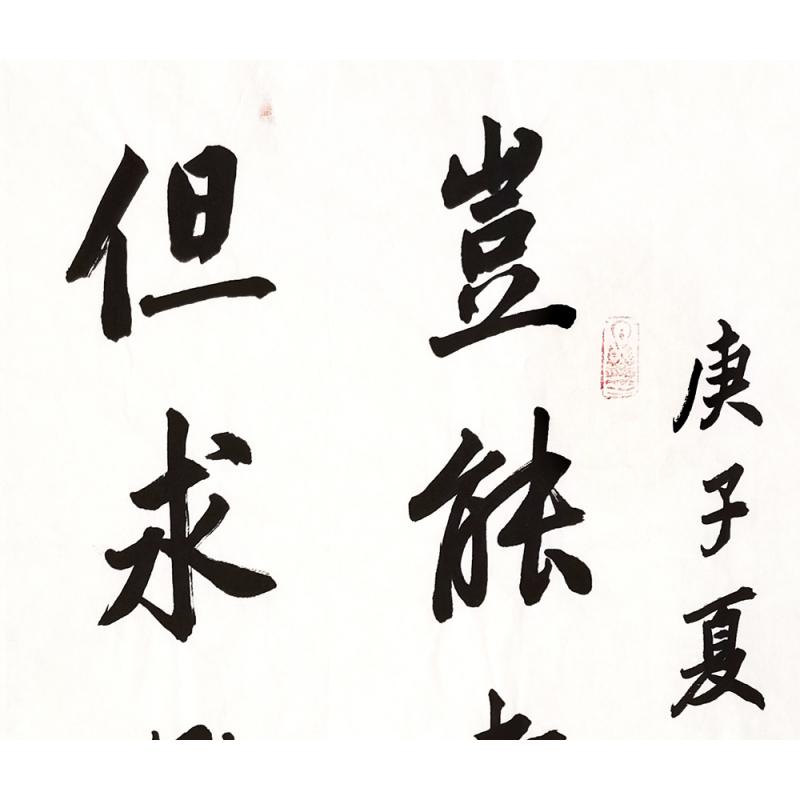 庚子夏
豈能
但求